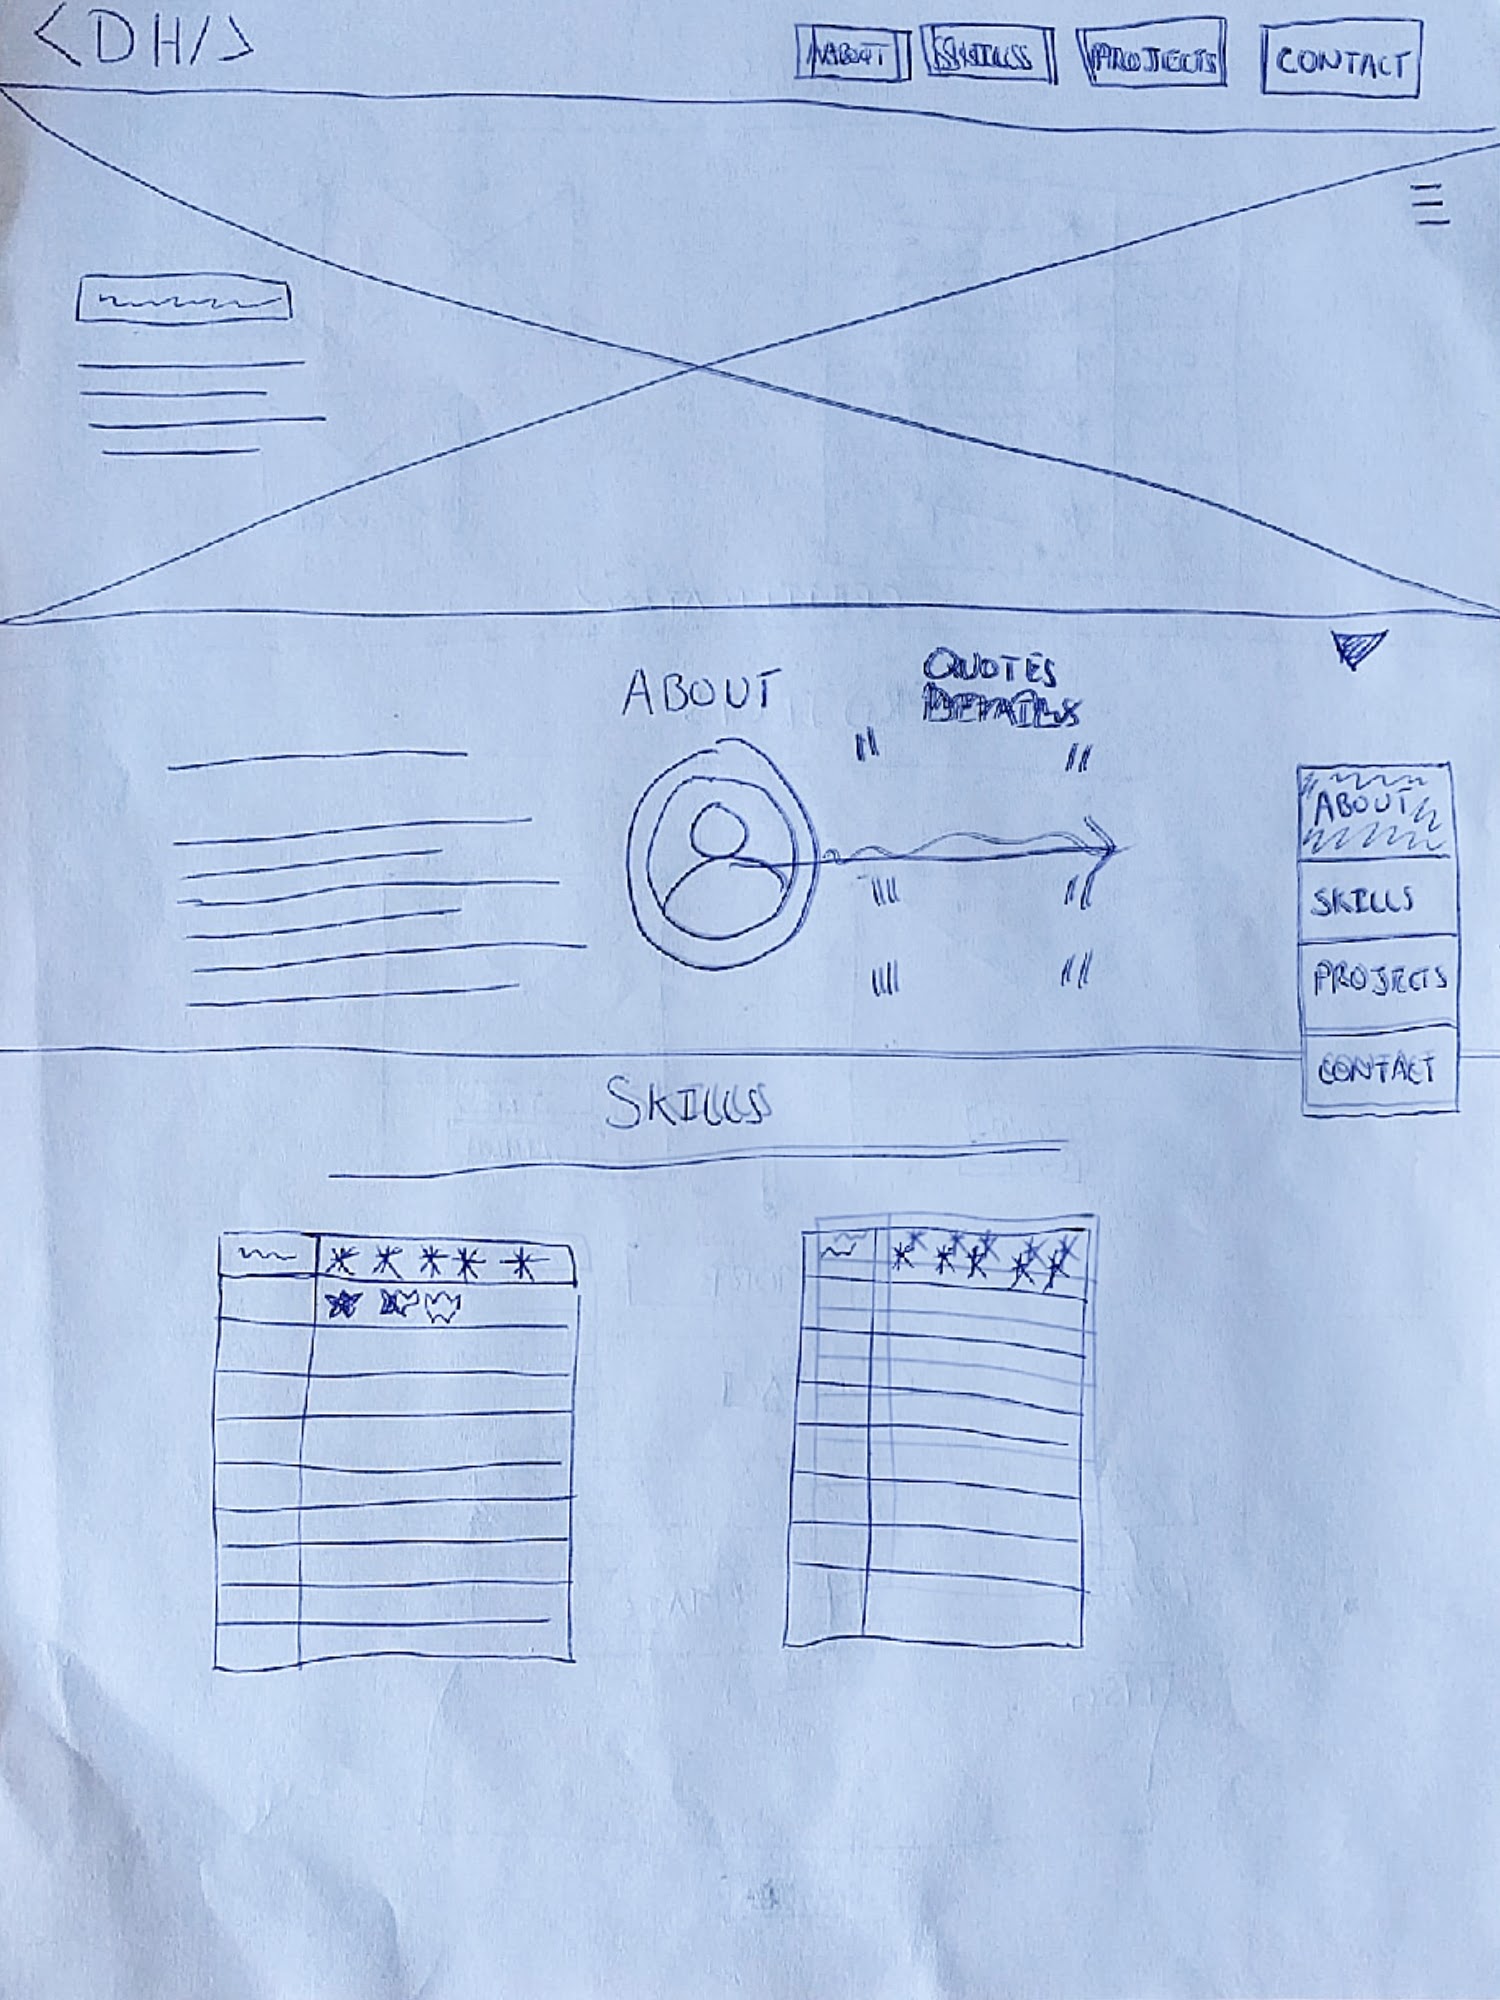 <DH/>
ABOUT SKILLS PROJECTS CONTACT
ABOUT
QUOTES
DETAILS
" "
" "
" "
ABOUT
SKILLS
PROJECTS
CONTACT
SKILLS